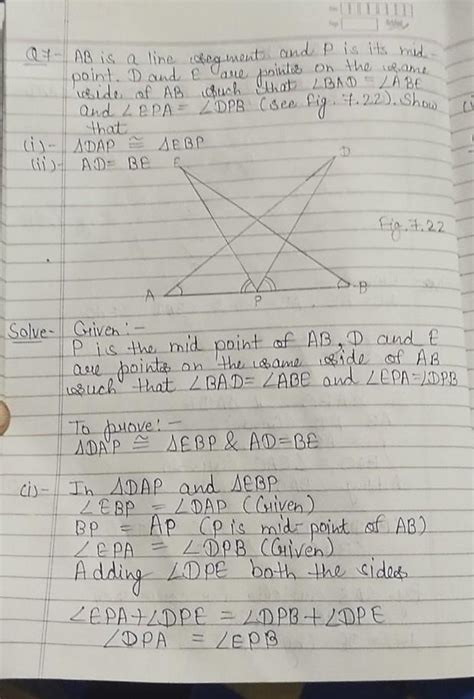 Q7- AB is a line segment and P is its mid-
point. D and E are points on the same
side of AB such that ∠BAD = ∠ABE
and ∠EPA = ∠DPB (See fig. 7.22). Show
that
(i)- ΔDAP ≅ ΔEBP
(ii)- AD = BE
E
D
Fig. 7.22
A
P
B
Solve- Given:-
P is the mid point of AB, D and E
are points on the same side of AB
such that ∠BAD = ∠ABE and ∠EPA = ∠DPB
To prove:-
ΔDAP ≅ ΔEBP & AD = BE
(i)- In ΔDAP and ΔEBP
∠EBP = ∠DAP (Given)
BP = AP (P is mid-point of AB)
∠EPA = ∠DPB (Given)
Adding ∠DPE both the sides
∠EPA + ∠DPE = ∠DPB + ∠DPE
∠DPA = ∠EPB